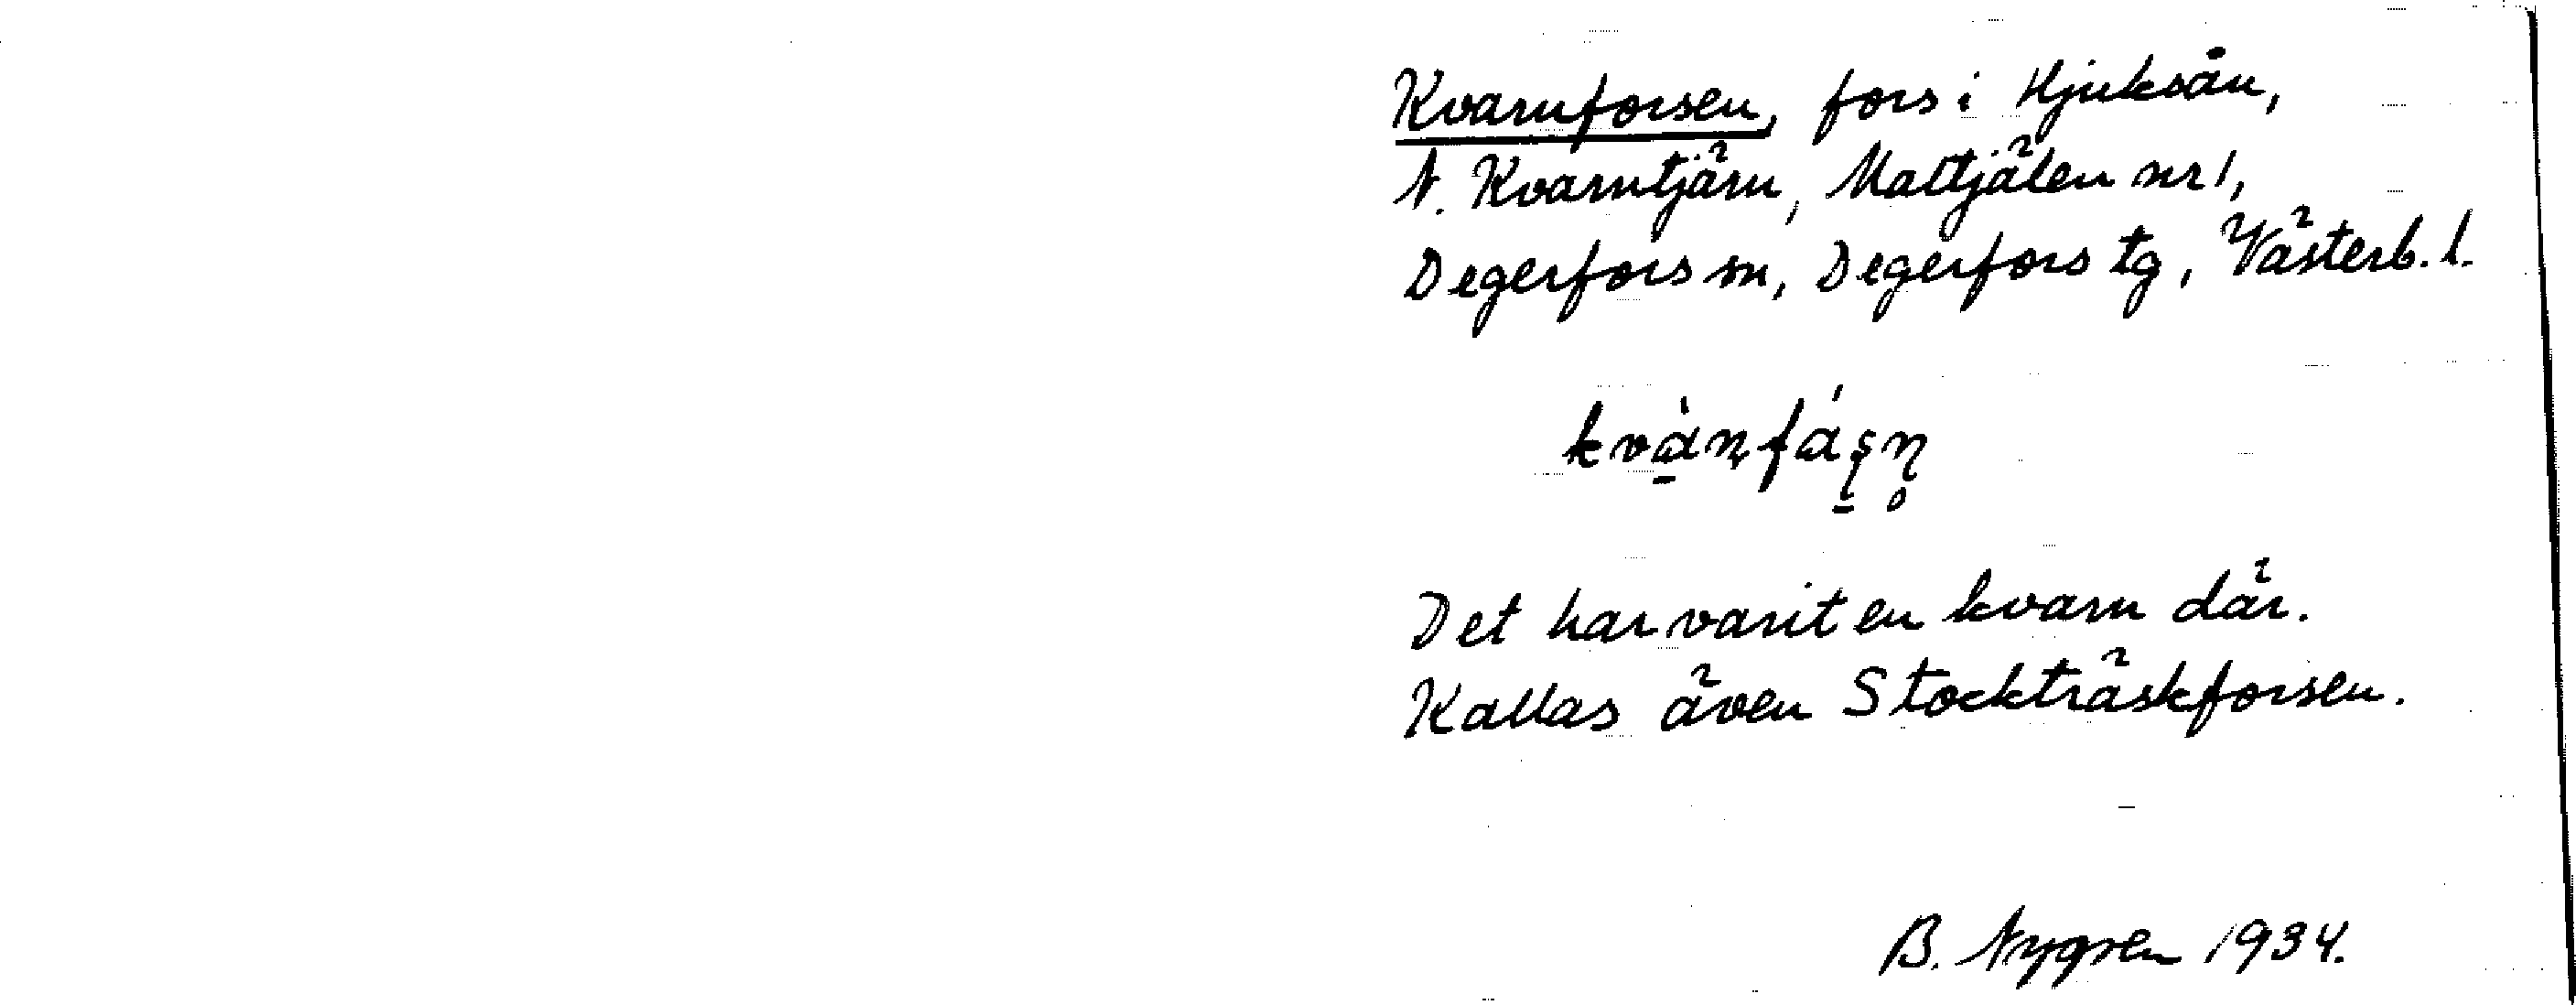 Kvarnforsen, fors i Hjuksån,
N. Kvarntjärn, Mattjälen nr 1,
Degerfors sn, Degerfors tg, Västerb. l.
Det har varit en kvarn där.
Kallas även Stockträskforsen.
B. Nygren 1934.